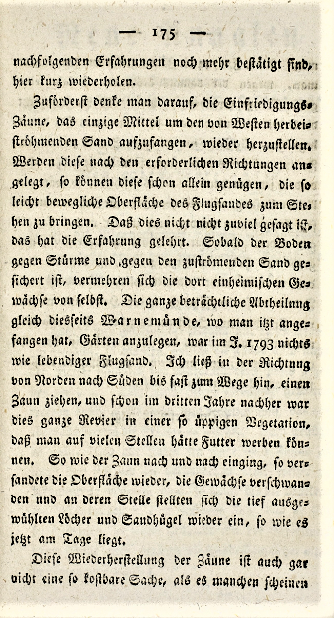 — 175 —
nachfolgenden Erfahrungen noch mehr bestätigt sind,
hier kurz wiederholen.
Zuförderst denke man darauf, die Einfriedigungs-
Zäune, das einzige Mittel um den von Westen herbei-
ströhmenden Sand aufzufangen, wieder herzustellen.
Werden diese nach den erforderlichen Richtungen an-
gelegt, so können diese schon allein genügen, die so
leicht bewegliche Oberfläche des Flugsandes zum Ste-
hen zu bringen. Daß dies nicht nicht zuviel gesagt ist,
das hat die Erfahrung gelehrt. Sobald der Boden
gegen Stürme und gegen den zuströmenden Sand ge-
sichert ist, vermehren sich die dort einheimischen Ge-
wächse von selbst. Die ganze beträchtliche Abtheilung
gleich diesseits Warnemünde, wo man itzt ange-
fangen hat, Gärten anzulegen, war im J. 1793 nichts
wie lebendiger Flugsand. Ich ließ in der Richtung
von Norden nach Süden bis fast zum Wege hin, einen
Zaun ziehen, und schon im dritten Jahre nachher war
dies ganze Revier in einer so üppigen Vegetation,
daß man auf vielen Stellen hätte Futter werben kön-
nen. So wie der Zaun nach und nach einging, so ver-
sandete die Oberfläche wieder, die Gewächse verschwan-
den und an deren Stelle stellten sich die tief ausge-
wühlten Löcher und Sandhügel wieder ein, so wie es
jetzt am Tage liegt.
Diese Wiederherstellung der Zäune ist auch gar
nicht eine so kostbare Sache, als es manchen scheinen